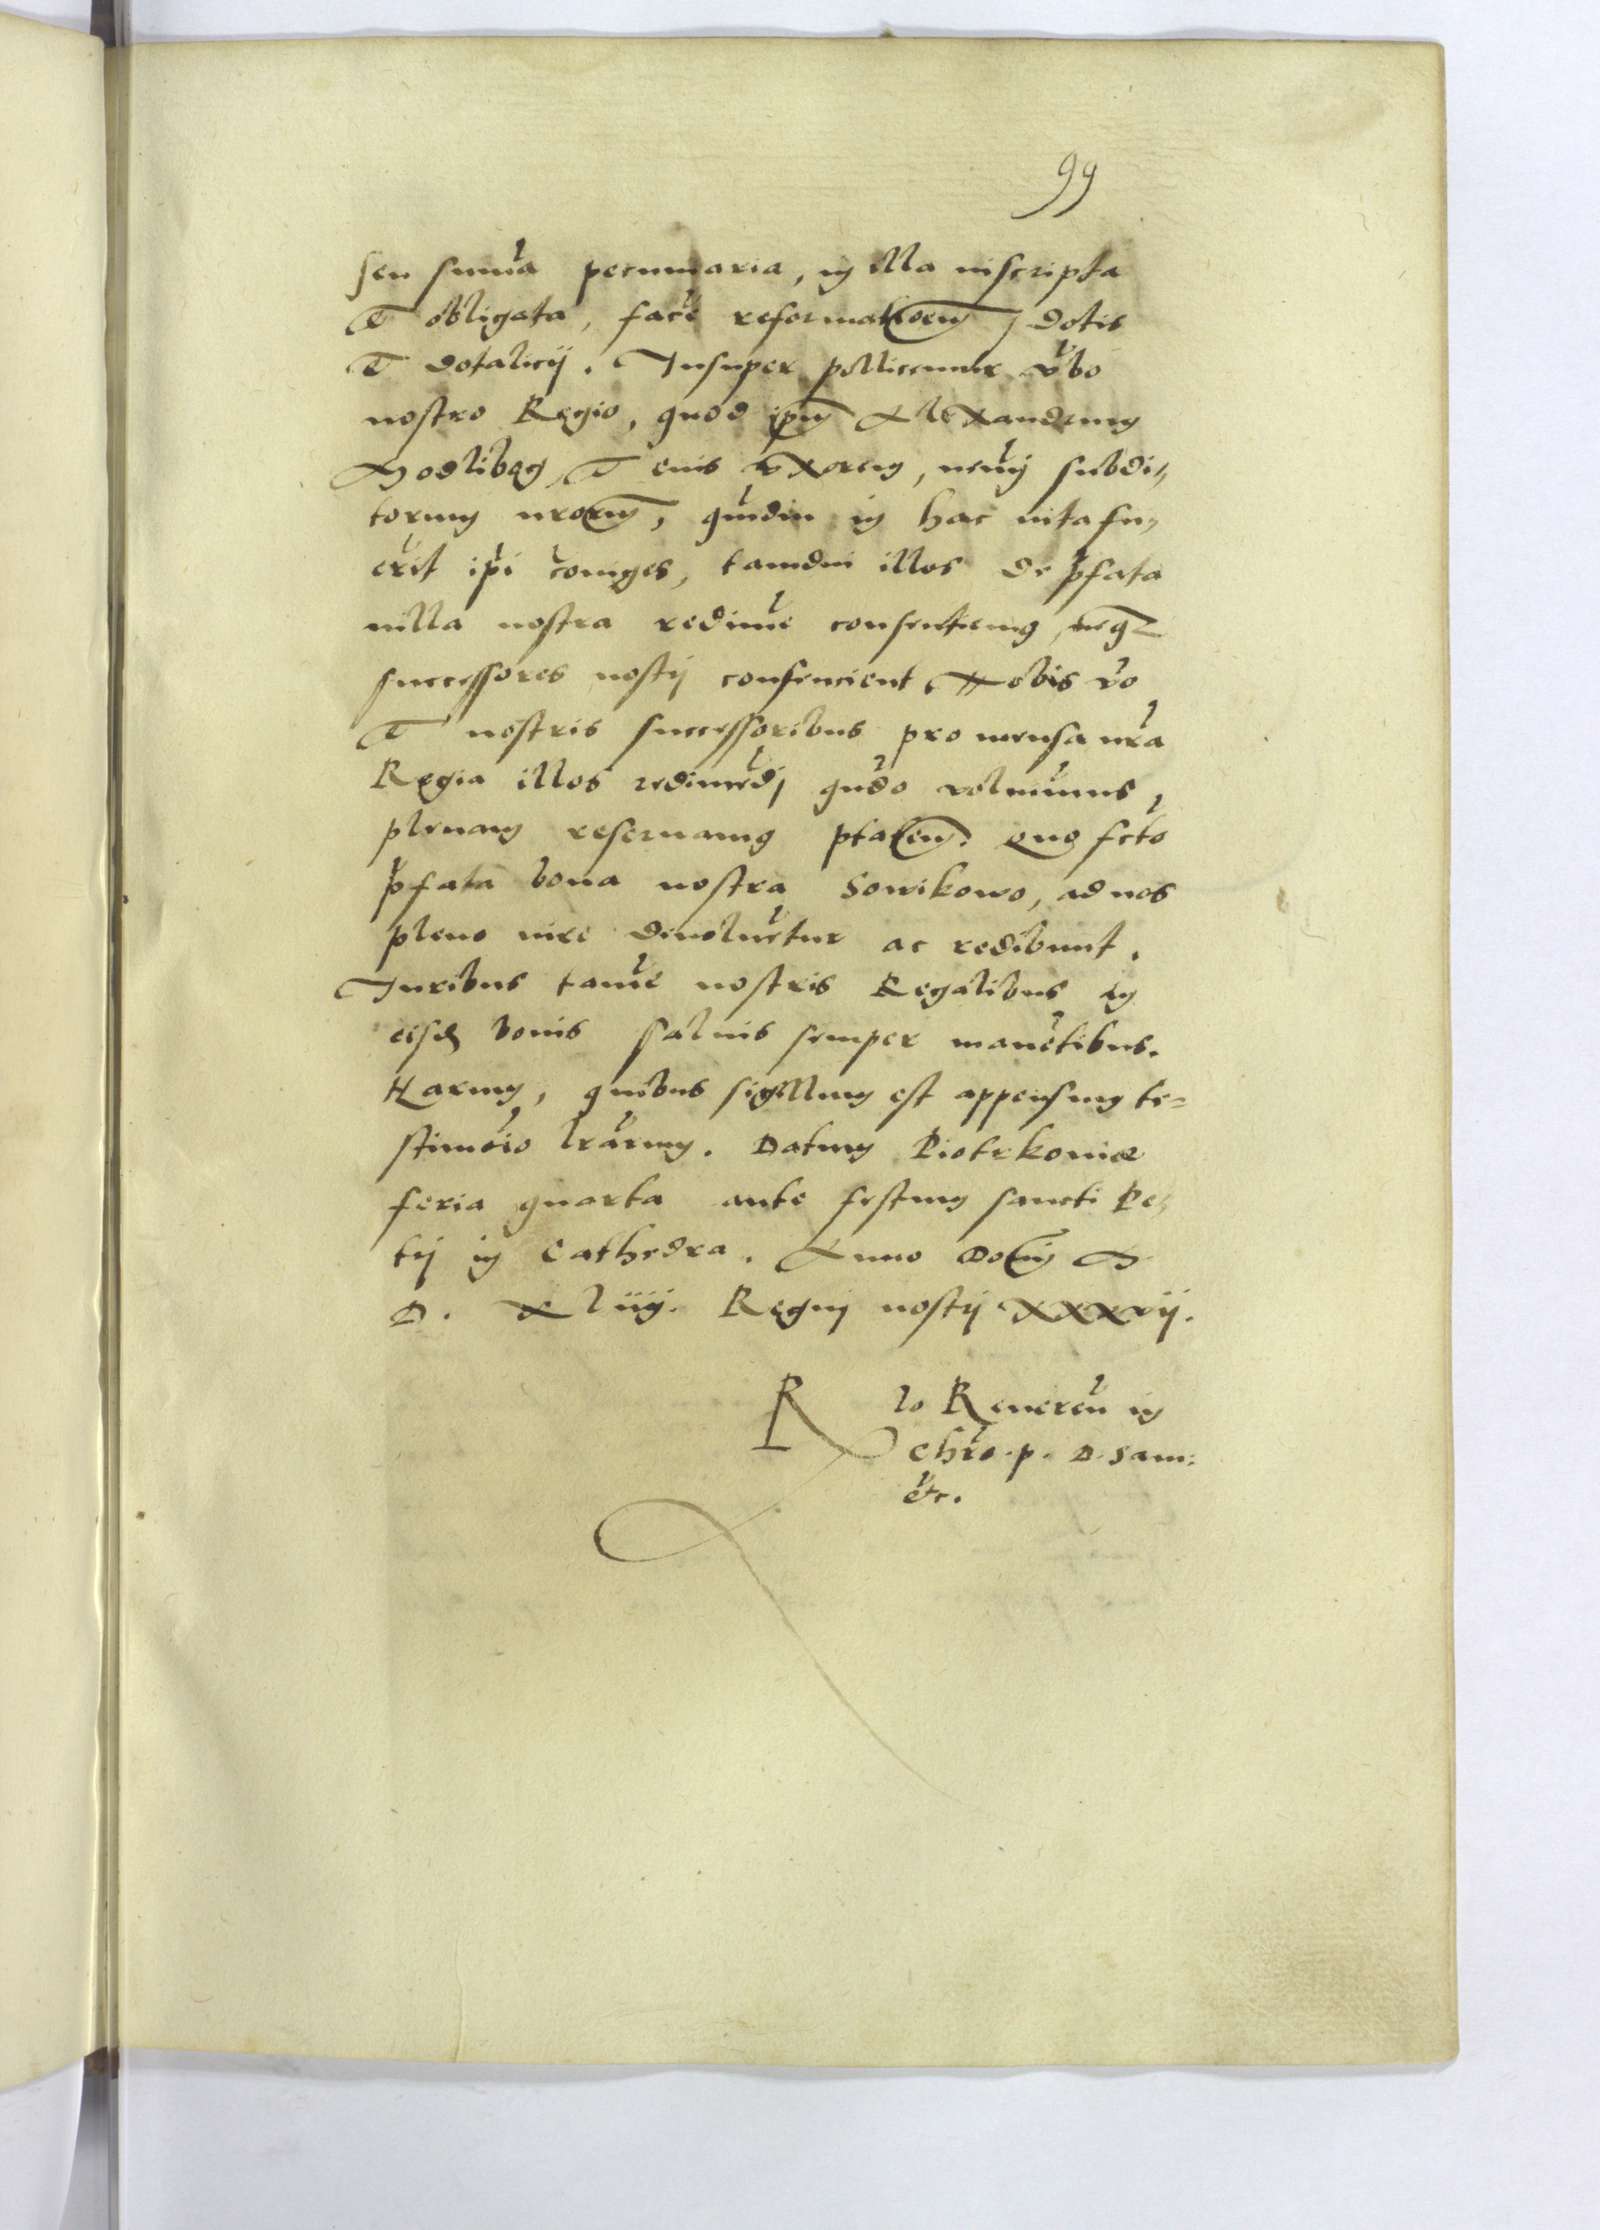 99
seu summa pecuniaria, in illa inscripta
et obligata, facē reformatioem dotis
et dotalicij. Insuper pollicemur vbo
nostro Regio, quod ipm Alexandrum
Modlibog et eius vxorem, nemī subdi,,
torum nrorum, qmdiu in hac vita fu,,
erīt ipī coniges, tamdiu illos de pfata
villa nostra redimē consentiemus, neq
successores nostrj consencient. Nobis vo
et nostris successoribus pro mensa nra
Regia illos redimēdj qndo voluimus,
plenam reseruamus ptatem. Quo fcto
pfata bona nostra Sowikowo, ad nos
pleno iure deuoluētur ac redibunt.
Iuribus tamē nostris Regalibus in
eisd bonis saluis semper manētibus.
Harum, quibus sigillum est appensum te=
stimoīo lrarum. Datum Piotrkouiæ
feria quarta ante festum sancti Pe,,
trj in Cathedra. Anno Domī M
D. xliiij. Regnj nostrj xxxvij.
R lo Reueren in
Chro. p. D. Sam:
etc.